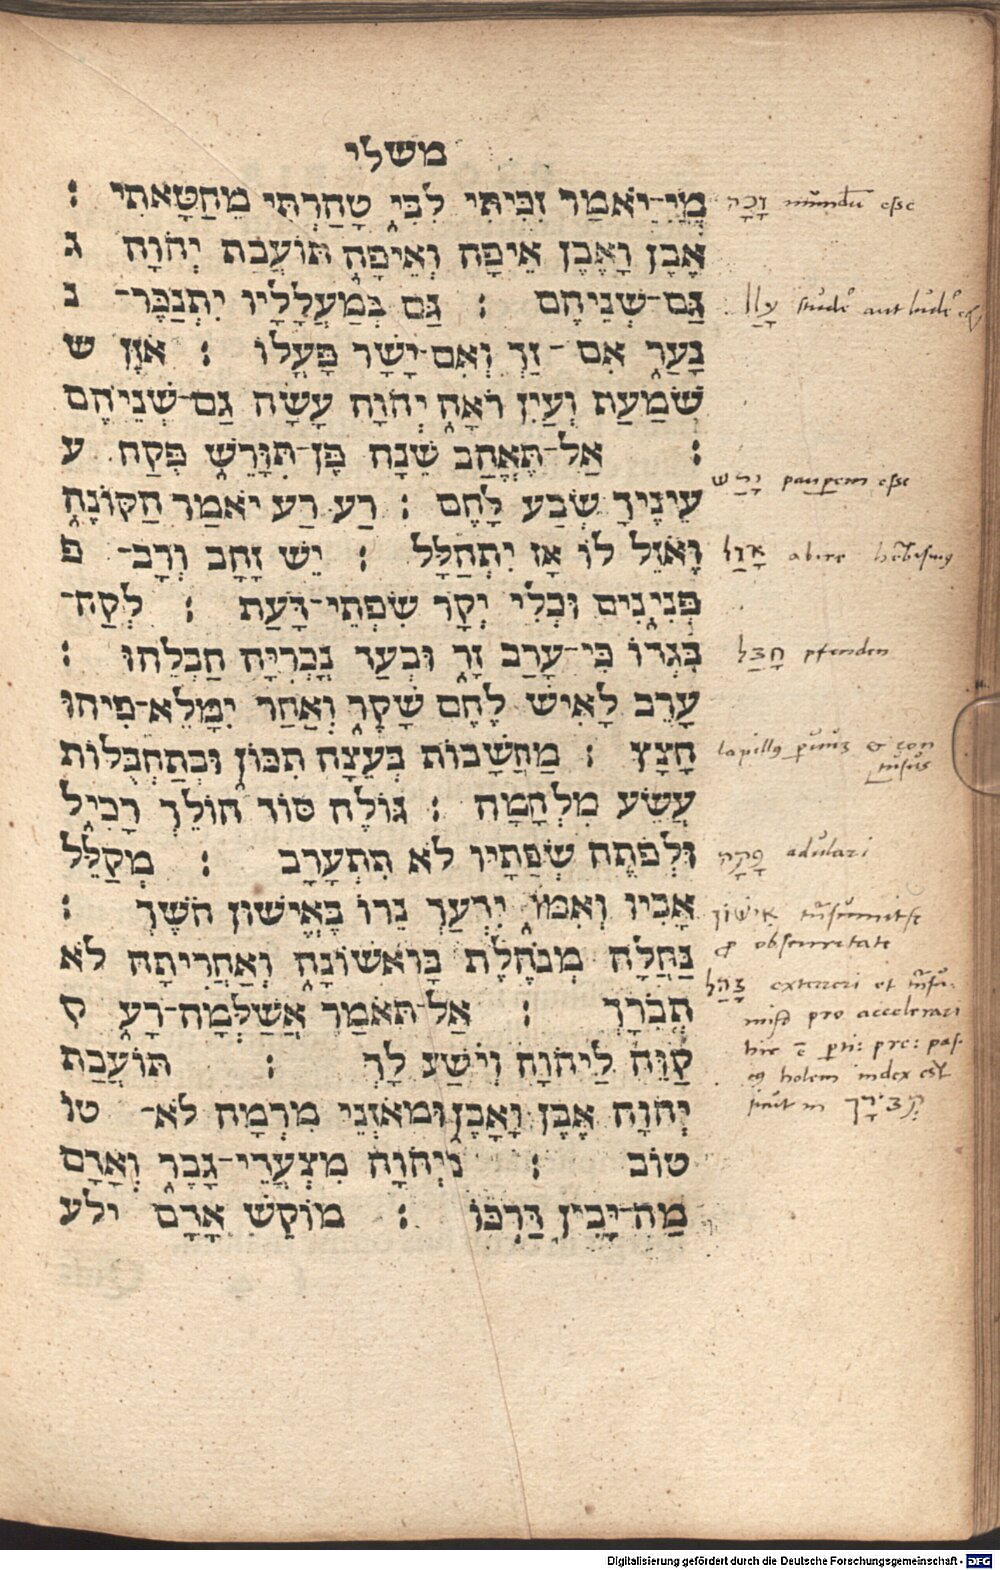 משלי
מִֽי־יֹאמַר זִכִּיתִי לִבִּי טָהַרְתִּי מֵחַטָּאתִי :
אֶבֶן וָאֶבֶן אֵיפָה וְאֵיפָה תּוֹעֲבַת יְהֹוָה ג
גַּם־שְׁנֵיהֶם : גַּם בְּמַעֲלָלָיו יִתְנַכֶּר־ נ
נָעַר אִם־זַךְ וְאִם־יָשָׁר פָּעֳלוֹ : אֹזֶן ש
שֹׁמַעַת וְעַיִן רֹאָה יְהֹוָה עָשָׂה גַם־שְׁנֵיהֶם
: אַל־תֶּאֱהַב שֵׁנָה פֶּן־תִּוָּרֵשׁ פְּקַח ע
עֵינֶיךָ שְׂבַע לָחֶם : רַע רַע יֹאמַר הַקּוֹנֶה
וְאֹזֵל לוֹ אָז יִתְהַלָּל : יֵשׁ זָהָב וְרָב־ פ
פְּנִינִים וּכְלִי יְקָר שִׂפְתֵי־דָעַת : לְקַח־
בִּגְדוֹ כִּי־עָרַב זָר וּבְעַד נָכְרִיָּה חַבְלֵהוּ :
עָרֵב לָאִישׁ לֶחֶם שָׁקֶר וְאַחַר יִמָּלֵא־פִיהוּ
חָצָץ : מַחֲשָׁבוֹת בְּעֵצָה תִכּוֹן וּבְתַחְבֻּלוֹת
עֲשֵׂע מִלְחָמָה : גּוֹלֶה סּוֹד הוֹלֵךְ רָכִיל
וּלְפֹתֶה שְׂפָתָיו לֹא תִתְעָרָב : מְקַלֵּל
אָבִיו וְאִמּוֹ יִדְעַךְ נֵרוֹ בֶּאֱישׁוּן חֹשֶׁךְ :
נַחֲלָה מְבֹחֶלֶת בָּרִאשׁוֹנָה וְאַחֲרִיתָהּ לֹא
תְבֹרָךְ : אַל־תֹּאמַר אֲשַׁלְּמָה־רָע ק
קַוֵּה לַיהֹוָה וְיֹשַׁע לָךְ : תּוֹעֲבַת
יְהֹוָה אֶבֶן וָאָבֶן וּמֹאזְנֵי מִרְמָה לֹא־ טו
טוֹב : מֵיְהֹוָה מִצְעֲדֵי־גָבֶר וְאָדָם
מַה־יָּבִין דַּרְכּוֹ : מוֹקֵשׁ אָדָם ילע
זָכָה mundu esse
studere aut ludere
יָרַשׁ pauperem esse
אָזַל abire
חָבַל pfenden
lapillus
פָּתָה adulari
אִישׁוֹן
obscuritate
בָּהַל exterreri et
pro accelerari
holem index est
sicut in
Digitalisierung gefördert durch die Deutsche Forschungsgemeinschaft - DFG